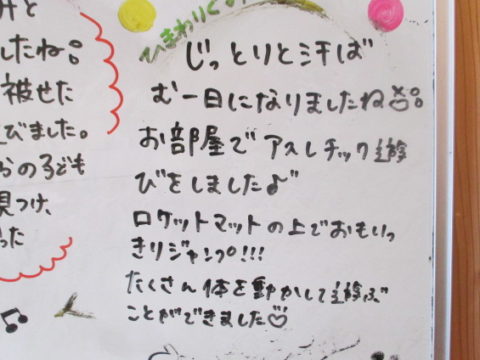 みと
したね
被せた
びました。
らの子ども
見つけ、
った
ひまわりぐみ
じっとりと汗ば
む一日になりましたね
お部屋でアスレチック遊
びをしました♪
ロケットマットの上でおもいっ
きりジャンプ!!!
たくさん体を動かして遊ぶ
ことができました